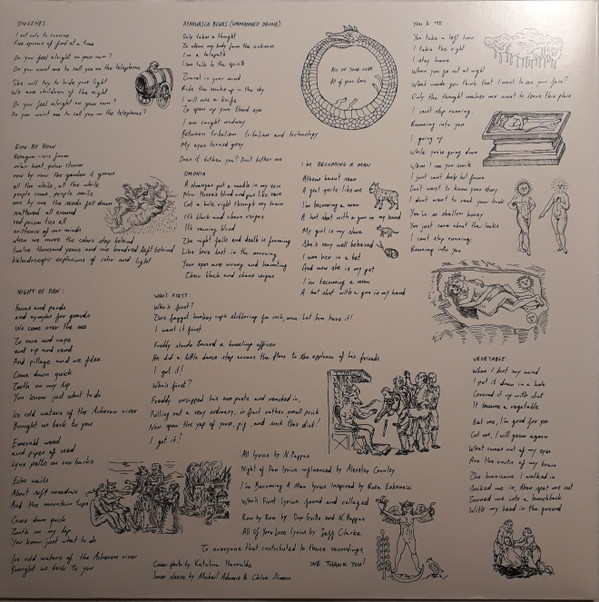 DIOGENES:
I eat only to survive
Five spoons of food at a time
Do you feel alright on your own?
Do you want me to call you on the telephone
She will try to hide past light
We are children of the night
Do you feel alright on your own?
Do you want me to call you on the telephone?
ROW BY ROW:
solar heat, polar storms
row by row the garden it grows
all the while, at the while
people come, people smile
one by one the seeds fall down
scattered all around
existence of our minds
when we move the colors stay behind
twelve thousand years and one hundred left behind
Kaleidoscopic explosions of color and light
NIGHT OF PAN:
Fauns and pards
and nymphs for guards
We come over the sea
To rave and rape
and rip and rend
And pillage and we flee
Come down quick
Tooth on my lip
You know just what to do
Ice cold waters of the Acheron river
Brought us back to you
Emerald weed
and pipes of reed
Lynx pelts on our backs
Echo wails
About soft meadows
And the mountain tops
Come down quick
Tooth on my lip
You know just what to do
Ice cold waters of the Acheron river
Brought us back to you
AYAHUASCA BLUES (UNMANNED DRONE):
Only takes a thought
To allow my body from the sickness
I'm a telepath
I can talk to the spirits
Travel in your mind
Ride the snake up in the sky
I will use a knife
To open up your third eye
I am caught midway
Between tribalism tribalism and technology
My eyes turned grey
Does it bother you? Don't bother me
OMONIA
A stranger put a needle in my vein
Now Medusa's blood and pus like rain
Cut a hole right through my brain
It's thick and chaos verges
It's raining blood
The night falls and death is foaming
Like love lost in the morning
Your eyes are wrong and haunting
Their black and chaos verges
WHO'S FIRST:
Who's first?
I want it first
Freddy stands toward a hovering officer
He did a little dance step across the floor to the applause of his friends
I got it!
Who's first?
Freddy unzipped his own pants and reached in,
Pulling out a very ordinary, in fact rather small prick
Now open the yap of yours, pig, and suck this dick!
I got it!
ALL OF YOUR LOVE
All of your love
I'M BECOMING A MAN
Athens basset man
A goat quite like me
I'm becoming a man
A hot shot with a gun in my hand
My girl is my shore
She's very well behaved
I won her in a bet
And now she is my pet
I'm becoming a man
A hot shot with a gun in my hand
YOU & ME
You take a left turn
I take the right
I stay home
When you go out at night
What made you think that I want to see your face?
Only the thought makes me want to leave this place
I can't stop running
Running into you
I going up
While you're going down
When I see you smile
I just can't help but frown
Don't want to know your story
I don't want to read your book
You're so shallow honey
You just care about the looks
I can't stop running
Running into you
VEGETABLE:
When I lost my mind
I put it down in a hole
Covered it up with shit
It became a vegetable
Eat me, I'm good for you
Cut me, I will grow again
What comes out of my eyes
Are the roots of my brain
The hurricane I walked in
Sucked me in, then spat me out
Turned me into a hunchback
With my head in the ground
All lyrics by N. Pappas
Night of Pan lyrics influenced by Aleister Crowley
I'm Becoming A Man lyrics inspired by
Who's First lyrics found and collaged
Row by Row by and N. Pappas
All Of Your Love lyrics by Jeff Clarke
To everyone that contributed to these recordings
WE THANK YOU!
Cover photo by Katerina
Inner sleeve by Michail Adamis & Chloe